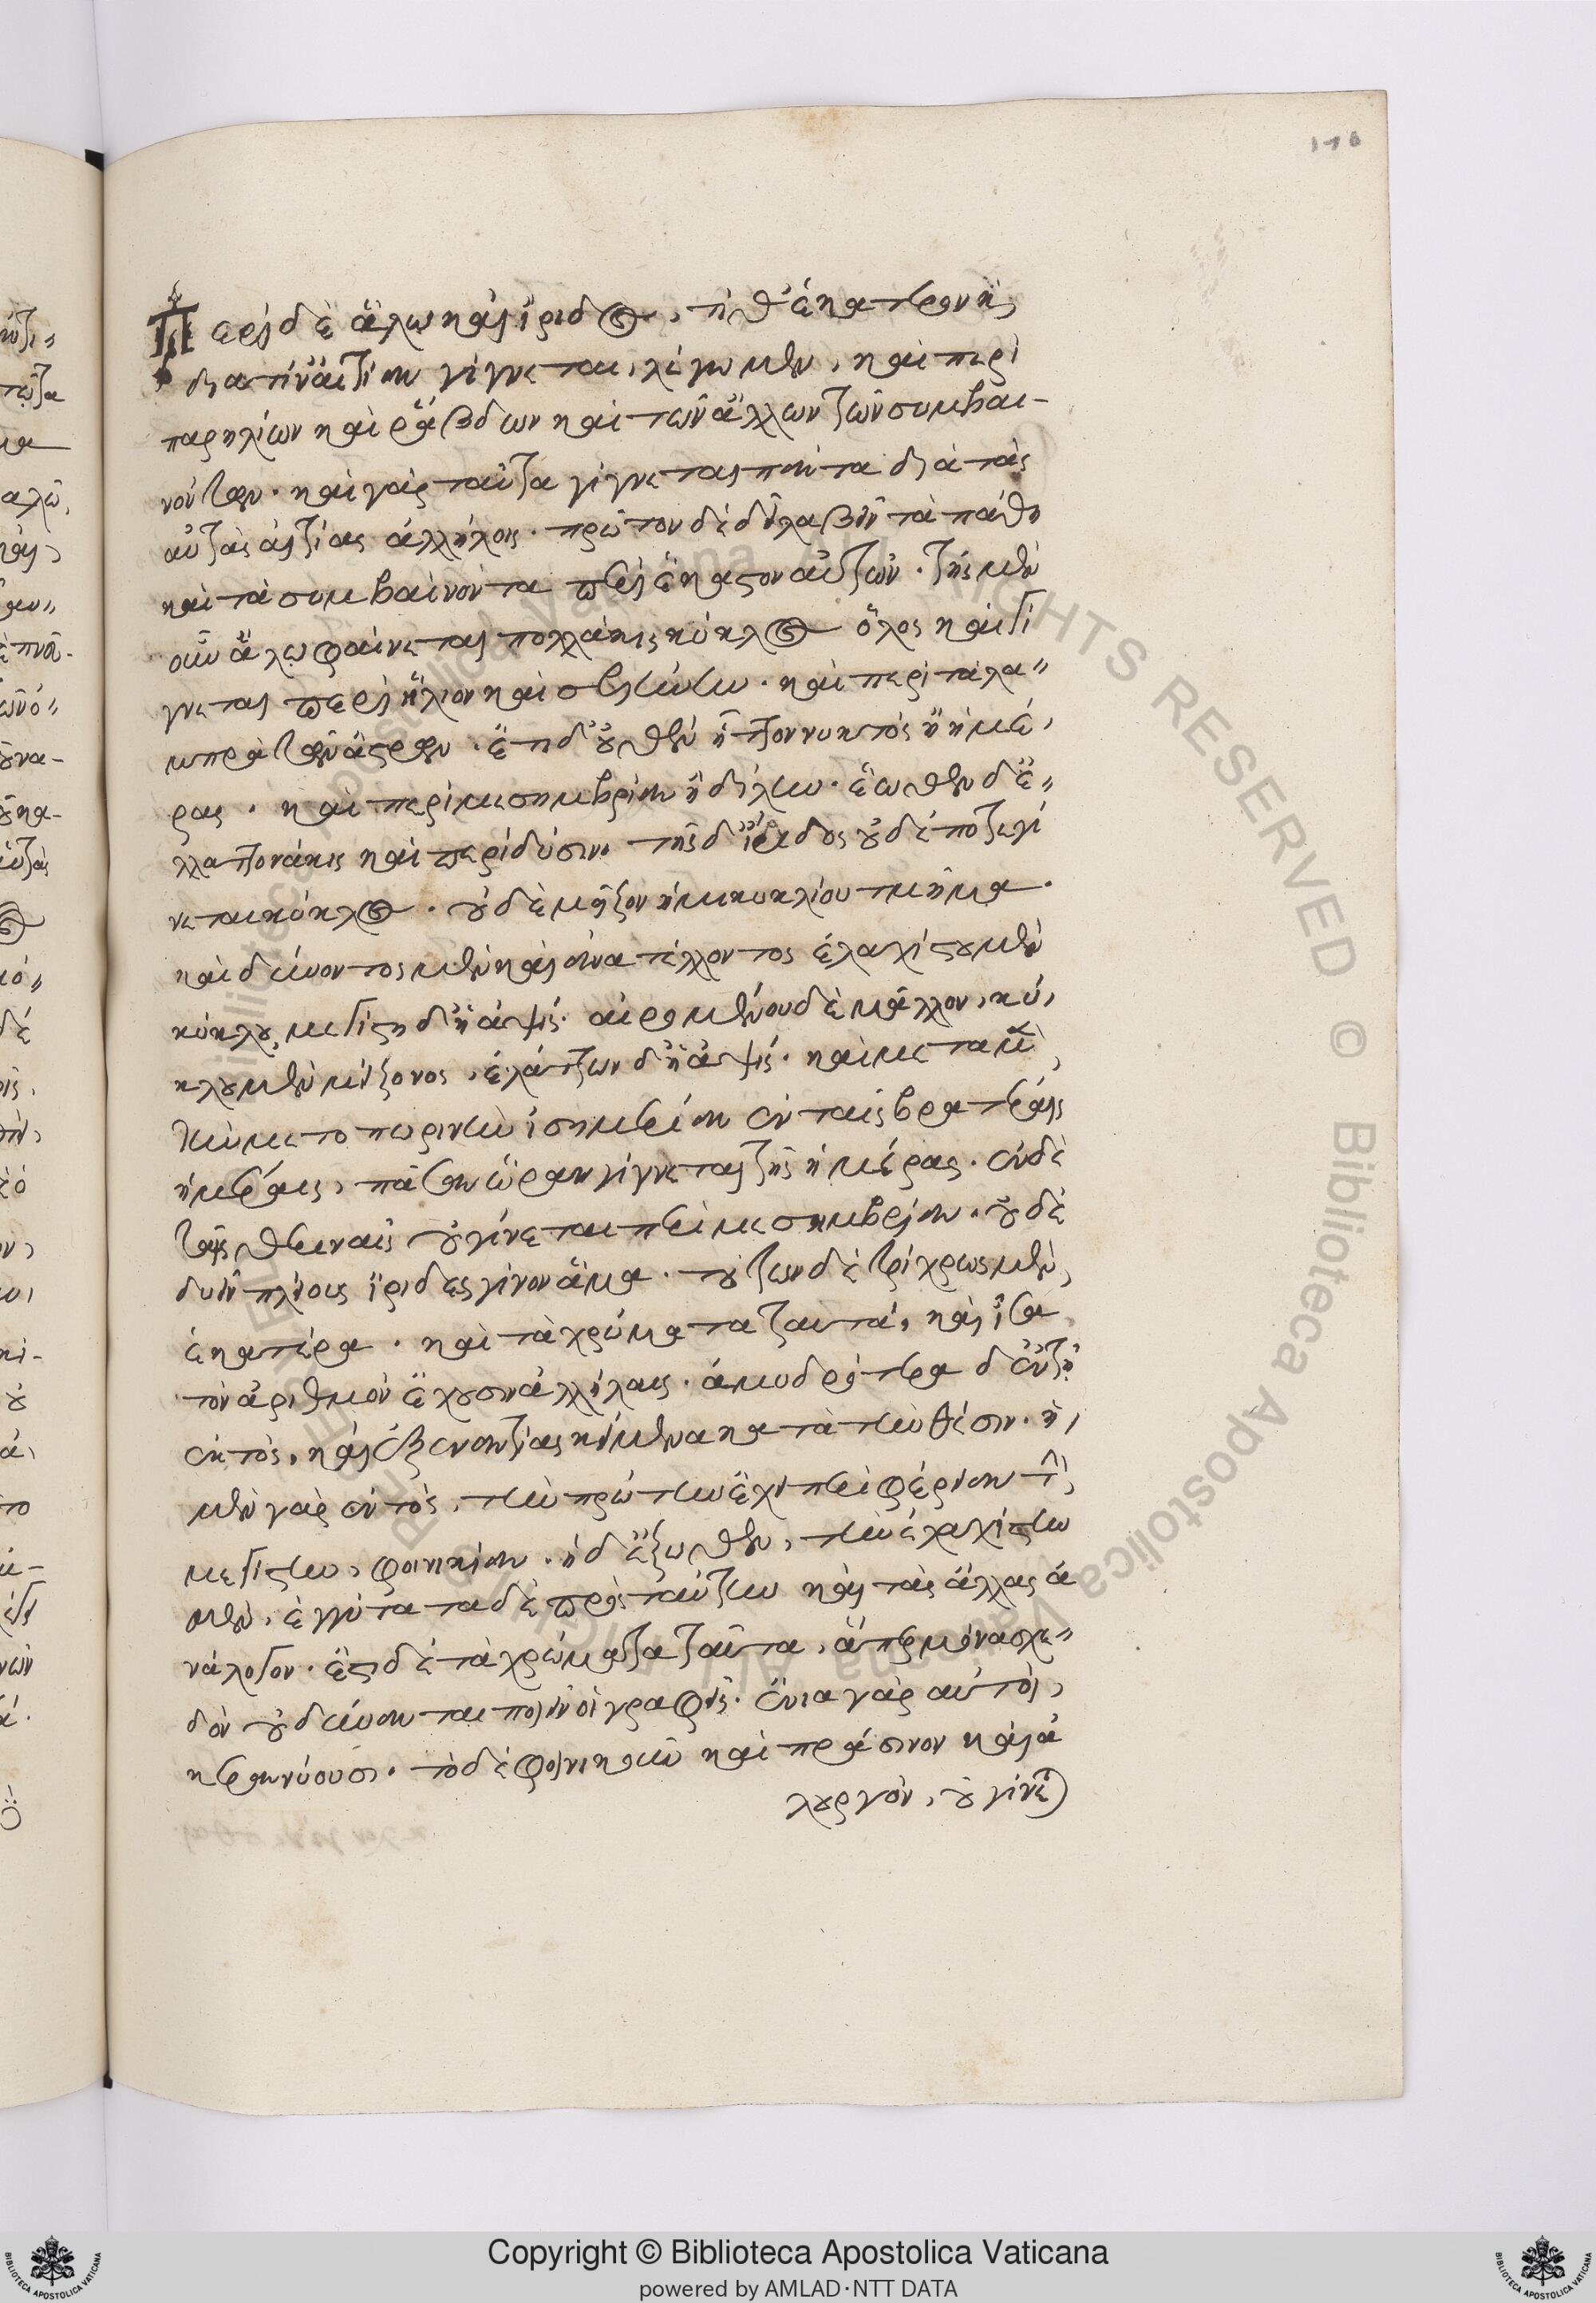 116
Περὶ δὲ ἅλω καὶ ἴριδος, τί θ' ἑκάτερον κὴ
διατίν' αἰτίαν γίγνεται, λέγωμεν, καὶ περὶ
παρηλίων καὶ ῥάβδων καὶ τῶν ἄλλων τῶν συμβαι-
νόντων. καὶ γὰρ ταῦτα γίγνεται πάντα διὰ τὰς
αὐτὰς αἰτίας ἀλλήλοις. πρῶτον δὲ δεῖ λαβεῖν τὰ πάθη
καὶ τὰ συμβαίνοντα περὶ ἕκαστον αὐτῶν. τῆς μὲν
οὖν ἅλω φαίνεται πολλάκις κύκλος ὅλος καὶ γί
γνεται περὶ ἥλιον καὶ σελήνην. καὶ περὶ τὰ λα"
μπρὰ τῶν ἄστρων. ἔτι δ' οὐθὲν ἧττον νυκτὸς ἢ ἡμέ,
ρας. καὶ περὶ μεσημβρίαν ἢ δείλην. ἕωθεν δ' ἐ"
λλαττονάκις καὶ περὶ δύσιν. τῆς δ' ἴριδος οὐδέποτε γί
νεται κύκλος. οὐδὲ μεῖζον ἡμικυκλίου τμῆμα.
καὶ δύνοντος μὲν καὶ ἀνατέλλοντος ἐλαχίστου μὲν
κύκλου, μεγίστη δ' ἡ ἁψίς. αἰρομένου δὲ μᾶλλον, κύ,
κλου μὲν μείζονος, ἐλάττων δ' ἡ ἁψίς. καὶ μετὰ μὲν
τὴν μετοπωρινὴν ἰσημερίαν ἐν ταῖς βραχτέραις
ἡμέραις, πᾶσαν ὥραν γίγνεται τῆς ἡμέρας. ἐν δὲ
ταῖς θεριναῖς οὐ γίνεται περὶ μεσημβρίαν. οὐδὲ
δυεῖν πλείους ἴριδες γίνον ἅμα. τούτων δὲ τρίχρως μὲν,
ἑκατέρα. καὶ τὰ χρώματα ταυτά, καὶ ἴσα
τὸν ἀριθμὸν ἔχουσιν ἀλλήλαις. ἀμυδρότερα δ' ἐν τῇ
ἐκτὸς, καὶ ἐξ ἐναντίας κείμενα κατὰ τὴν θέσιν. ἡ,
μὲν γὰρ ἐντὸς, τὴν πρώτην ἔχει περιφέρειαν τὴν,
μεγίστην, φοινικίαν. ἡ δ' ἔξωθεν, τὴν ἐλαχίστην
μὲν, ἐγγύτατα δὲ πρὸς ταύτην καὶ τὰς ἄλλας ἀ
νάλογον. ἔστι δὲ τὰ χρώματα ταῦτα, ἅπερ μόνα σχε"
δὸν οὐ δύνανται ποιεῖν οἱ γραφεῖς. ἔνια γὰρ αὐτοὶ,
κεραννύουσι. τὸ δὲ φοινικοῦν καὶ πράσινον καὶ ἁ
λουργὸν, οὐ γίνεται